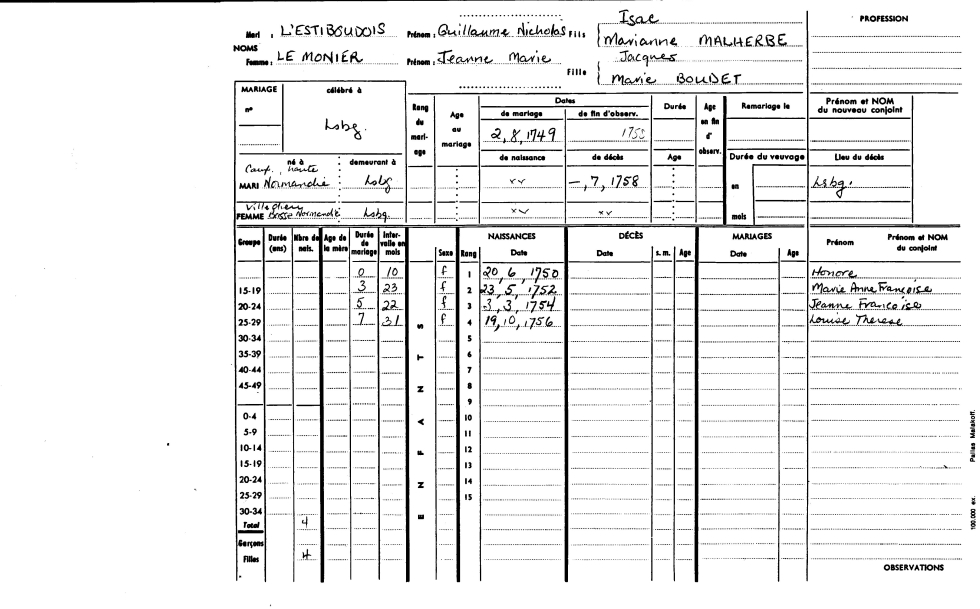 Isac
PROFESSION
Mari : L'ESTIBOUDOIS Prénom : Guillaume Nicholas Fils Marianne MALHERBE
NOMS
Jacques
Femme : LE MONIER Prénom : Jeanne Marie Fille
Marie BOUDET
MARIAGE célébré à
n°
Lsbg.
Rang du mariage
Age au mariage
Dates
de mariage de fin d'observ.
2, 8, 1749 1758
Durée
Age en fin d'observ.
Remariage le
Prénom et NOM du nouveau conjoint
né à demeurant à
de naissance de décès Age Durée du veuvage Lieu du décès
Caux, haute
MARI Normandie Lsbg
xx —, 7, 1758 en Lsbg.
Basse Normandie
FEMME Lsbg. xx xx mois
Groupe Durée (ans) Nbre de nais. Age de la mère Durée de mariage Intervalle en mois
ENFANTS
Sexe Rang NAISSANCES Date DÉCÈS Date s. m. Age MARIAGES Date Age Prénom Prénom et NOM du conjoint
0 10 f 1 20, 6, 1750 Honore
15-19 3 23 f 2 23, 5, 1752 Marie Anne Françoise
20-24 5 22 f 3 3, 3, 1754 Jeanne Françoise
25-29 7 31 f 4 19, 10, 1756 Louise Therese
30-34 5
35-39 6
40-44 7
45-49 8
9
0-4 10
5-9 11
10-14 12
15-19 13
20-24 14
25-29 15
30-34
Total 4
Garçons
Filles 4
OBSERVATIONS
100.000 ex. Pallas Malakoff.